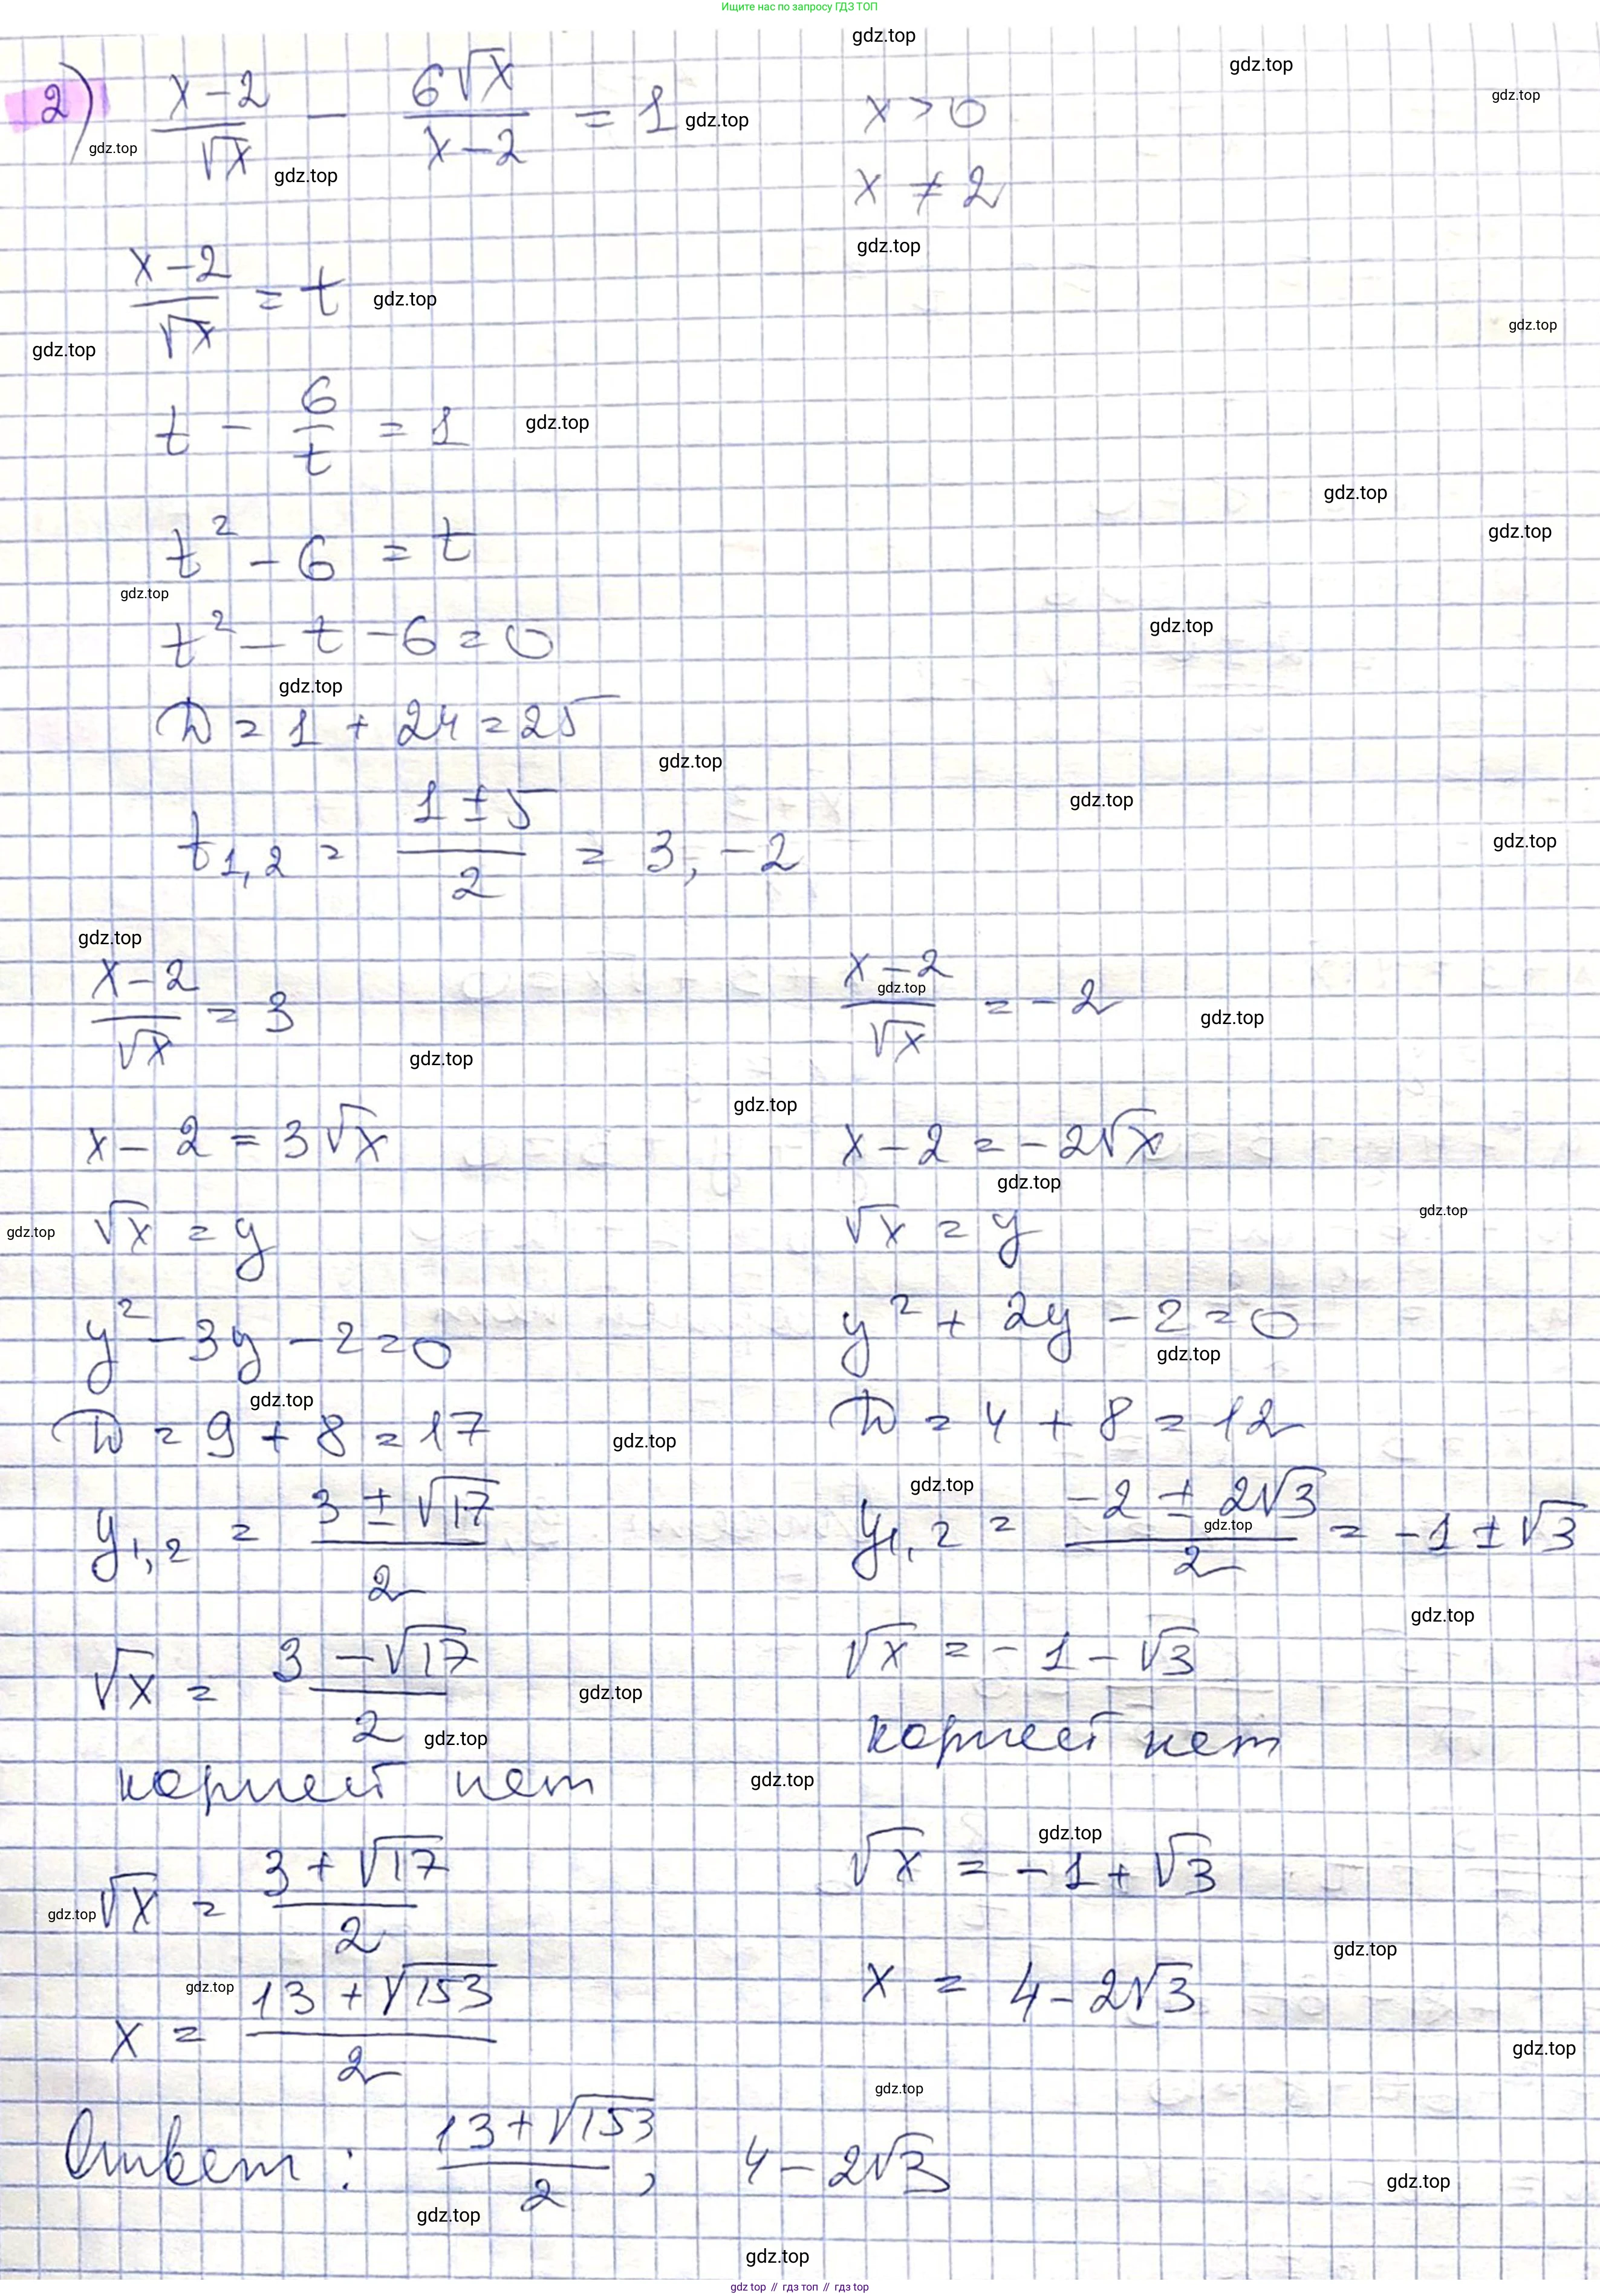 Ищите нас по запросу ГДЗ ТОП
2) (x-2)/√x - 6√x/(x-2) = 1    x > 0
x ≠ 2
(x-2)/√x = t
t - 6/t = 1
t² - 6 = t
t² - t - 6 = 0
D = 1 + 24 = 25
t₁,₂ = (1 ± 5)/2 = 3, -2
(x-2)/√x = 3
x - 2 = 3√x
√x = y
y² - 3y - 2 = 0
D = 9 + 8 = 17
y₁,₂ = (3 ± √17)/2
√x = (3 - √17)/2
корней нет
√x = (3 + √17)/2
x = (13 + √153)/2
(x-2)/√x = -2
x - 2 = -2√x
√x = y
y² + 2y - 2 = 0
D = 4 + 8 = 12
y₁,₂ = (-2 ± 2√3)/2 = -1 ± √3
√x = -1 - √3
корней нет
√x = -1 + √3
x = 4 - 2√3
Ответ: (13 + √153)/2, 4 - 2√3
gdz.top
gdz.top // гдз топ // гдз top